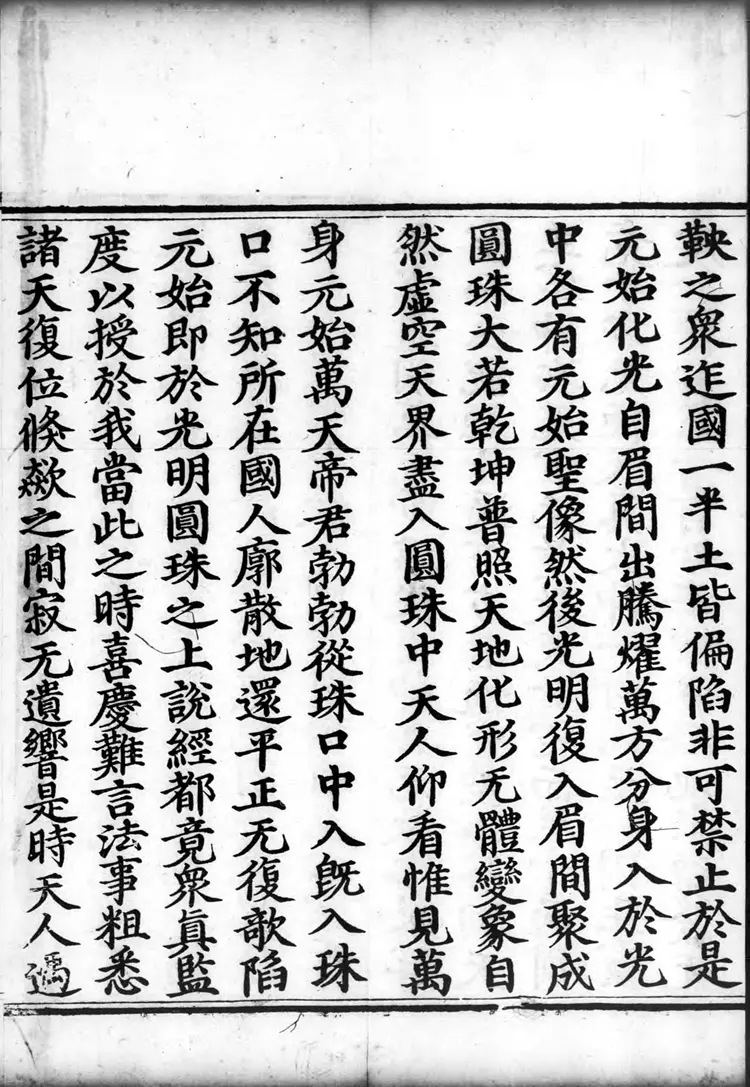 鞅之衆迮國一半土皆偏陷非可禁止於是
元始化光自眉間出騰耀萬方分身入於光
中各有元始聖像然後光明復入眉間聚成
圓珠大若乾坤普照天地化形无體變象自
然虛空天界盡入圓珠中天人仰看惟見萬
身元始萬天帝君勃勃從珠口中入旣入珠
口不知所在國人廓散地還平正无復欹陷
元始即於光明圓珠之上說經都竟衆真監
度以授於我當此之時喜慶難言法事粗悉
諸天復位倐欻之間寂无遺響是時天人遇